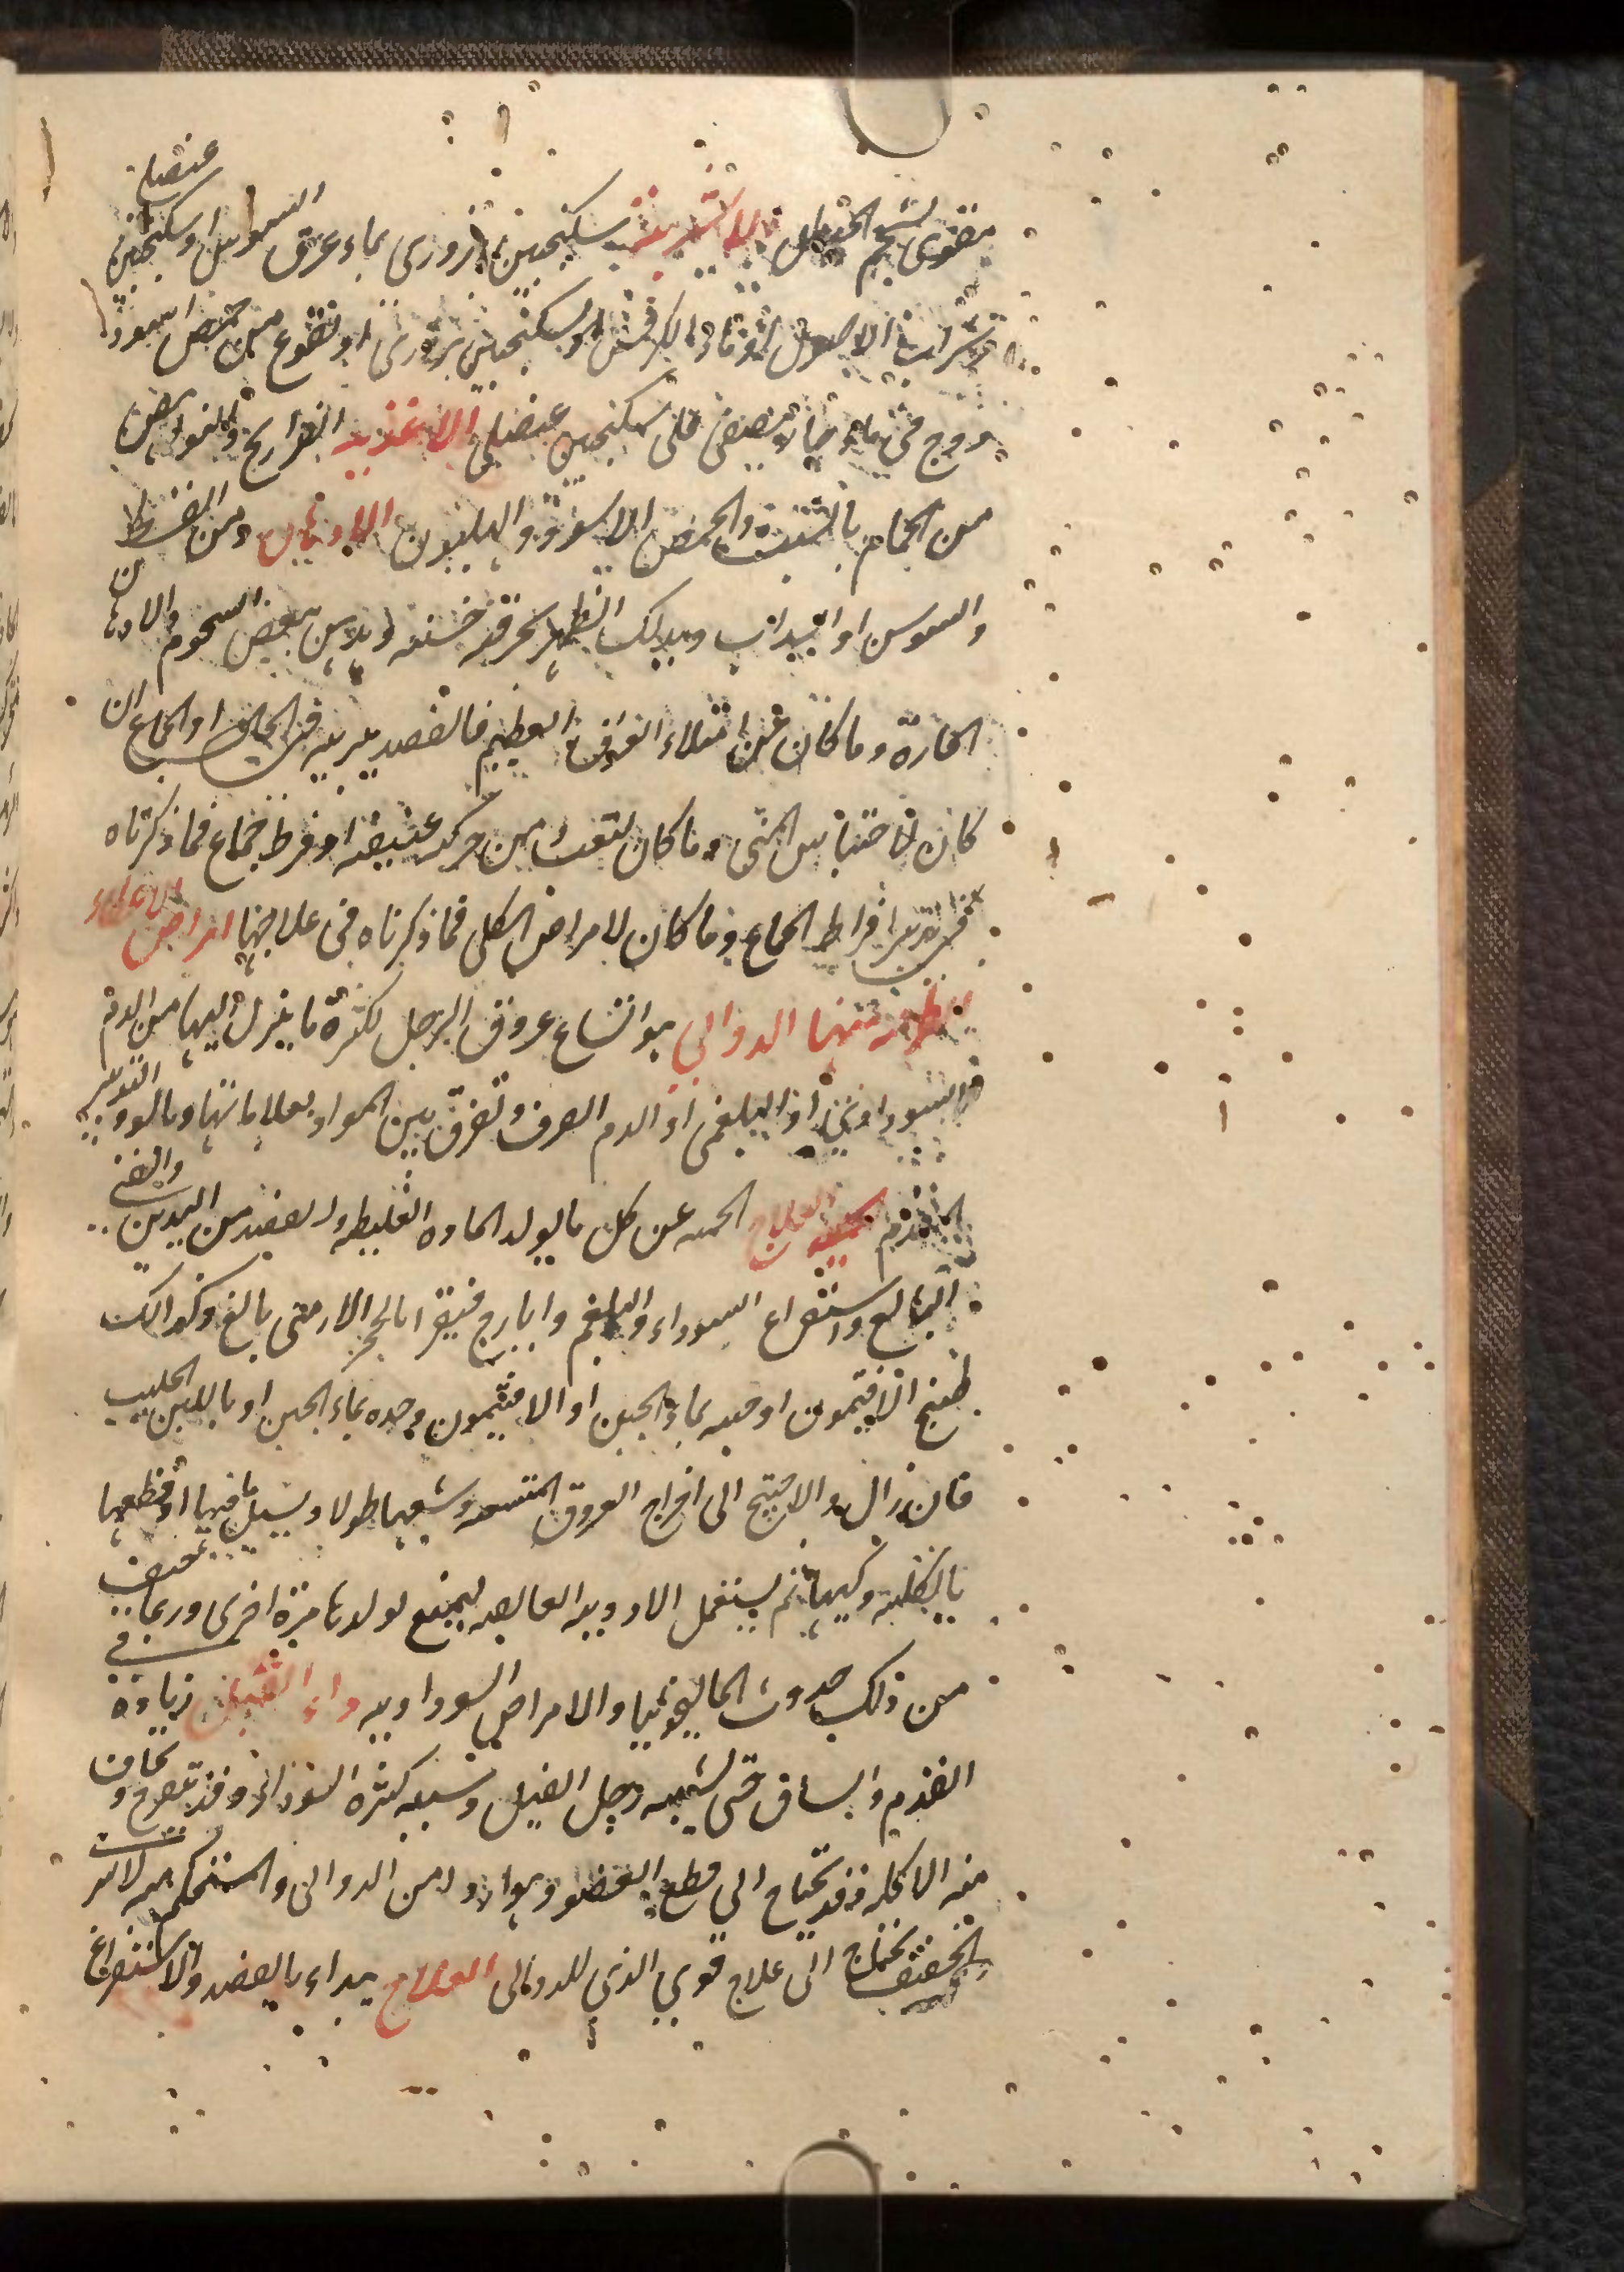 مقوى بشحم الحنظل الاشربة سكنجبين بزورى بماء عرق السوس او سكنجبين عنصلى
وشراب الاصول او ماء الكرفس او سكنجبين بزورى او نقوع من حمص اسود
فى ماء حار يصفى على سكنجبين عنصلى الاغذية الفراريج والنواهض
من الحمام بالشبت والحمص الاسود والهليون الادهان دهن القسط
والسوسن او السداب ويدلك الظهر بخرقة خشنة ويدهن ببعض الشحوم والادهان
الحارة وما كان عن امتلاء العرق العظيم فالفصد يبريه فى الحال او الجماع ان
كان لاحتباس المنى وما كان لتعب من حركة عنيفة او فرط جماع فما ذكرناه
فى تدبير افراط الجماع وما كان لامراض الكلى فما ذكرناه فى علاجها امراض الاعضاء
الظاهرة منها الدوالى هو اتساع عروق الرجل لكثرة ما ينزل اليها من الدم
السوداوى او البلغمى او الدم الصرف وتفرق بين المواد بعلاماتها وبالتدبير
المتقدم العلاج الحمية عن كل ما يولد المادة الغليظة والفصد من اليدين والقى
البالغ واستفراغ السوداء والبلغم وايارج فيقرا بالحجر الارمنى بالغ وكذلك
طبيخ الافتيمون او حبه بماء الجبن او الافتيمون وحده بماء الجبن او باللبن الحليب
فان زال والا احتيج الى اخراج العروق المتسعة وشقها طولا ويسيل ما فيها او قطعها
بالكلية وكيها ثم يستعمل الادوية القابضة ليمنع تولدها مرة اخرى وربما خيف
من ذلك حدوث الماليخوليا والامراض السوداوية داء الفيل زيادة فى
القدم والساق حتى يشبه رجل الفيل وسببه كثرة السوداء وقد يتقرح ويخاف
منه الاكلة فقد يحتاج الى قطع العضو وهو اردا من الدوالى والمستحكم منه لا يبرا
والخفيف يحتاج الى علاج قوى الذى للدوالى العلاج يبداء بالفصد والاستفراغ